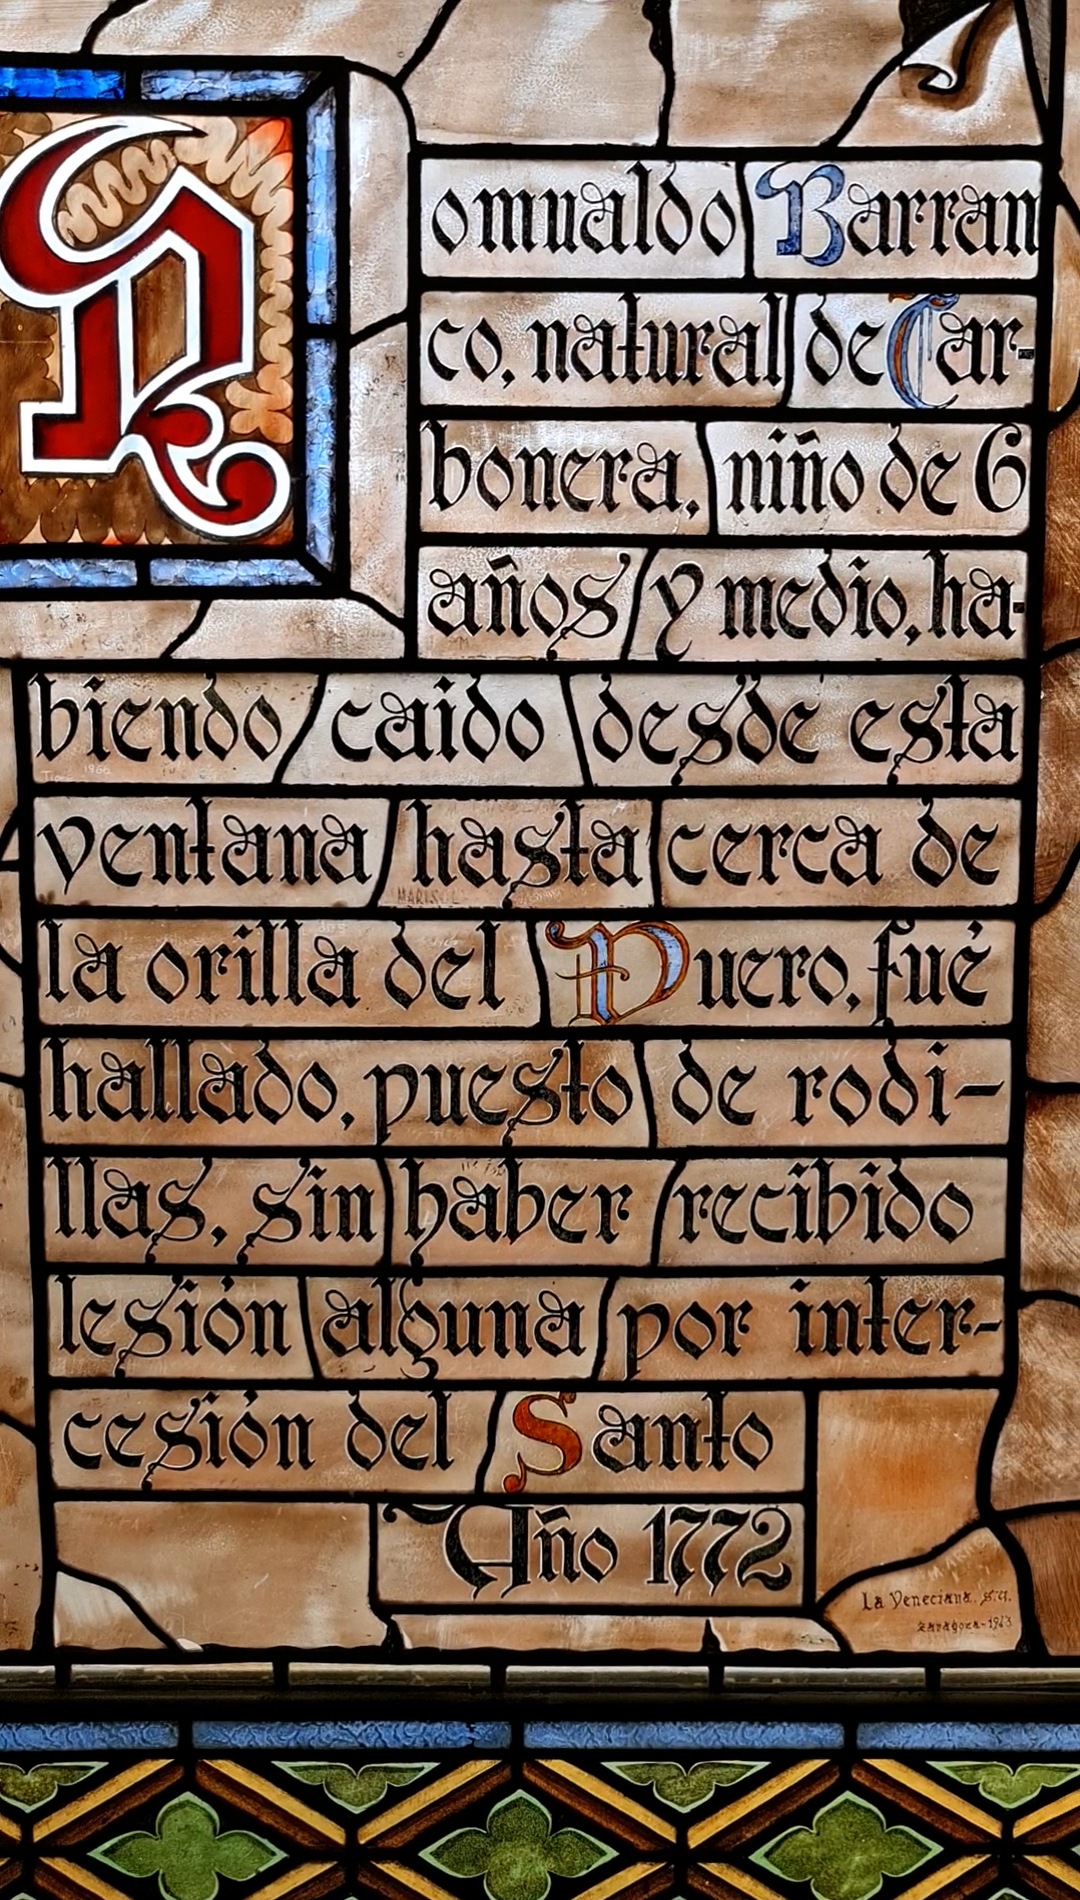 Romualdo Barran
co, natural de Car-
bonera, niño de 6
años y medio, ha-
biendo caido desde esta
ventana hasta cerca de
la orilla del Duero, fué
hallado, puesto de rodi-
llas, sin haber recibido
lesión alguna por inter-
cesión del Santo
Año 1772
La Veneciana. S.A.
Zaragoza-1963